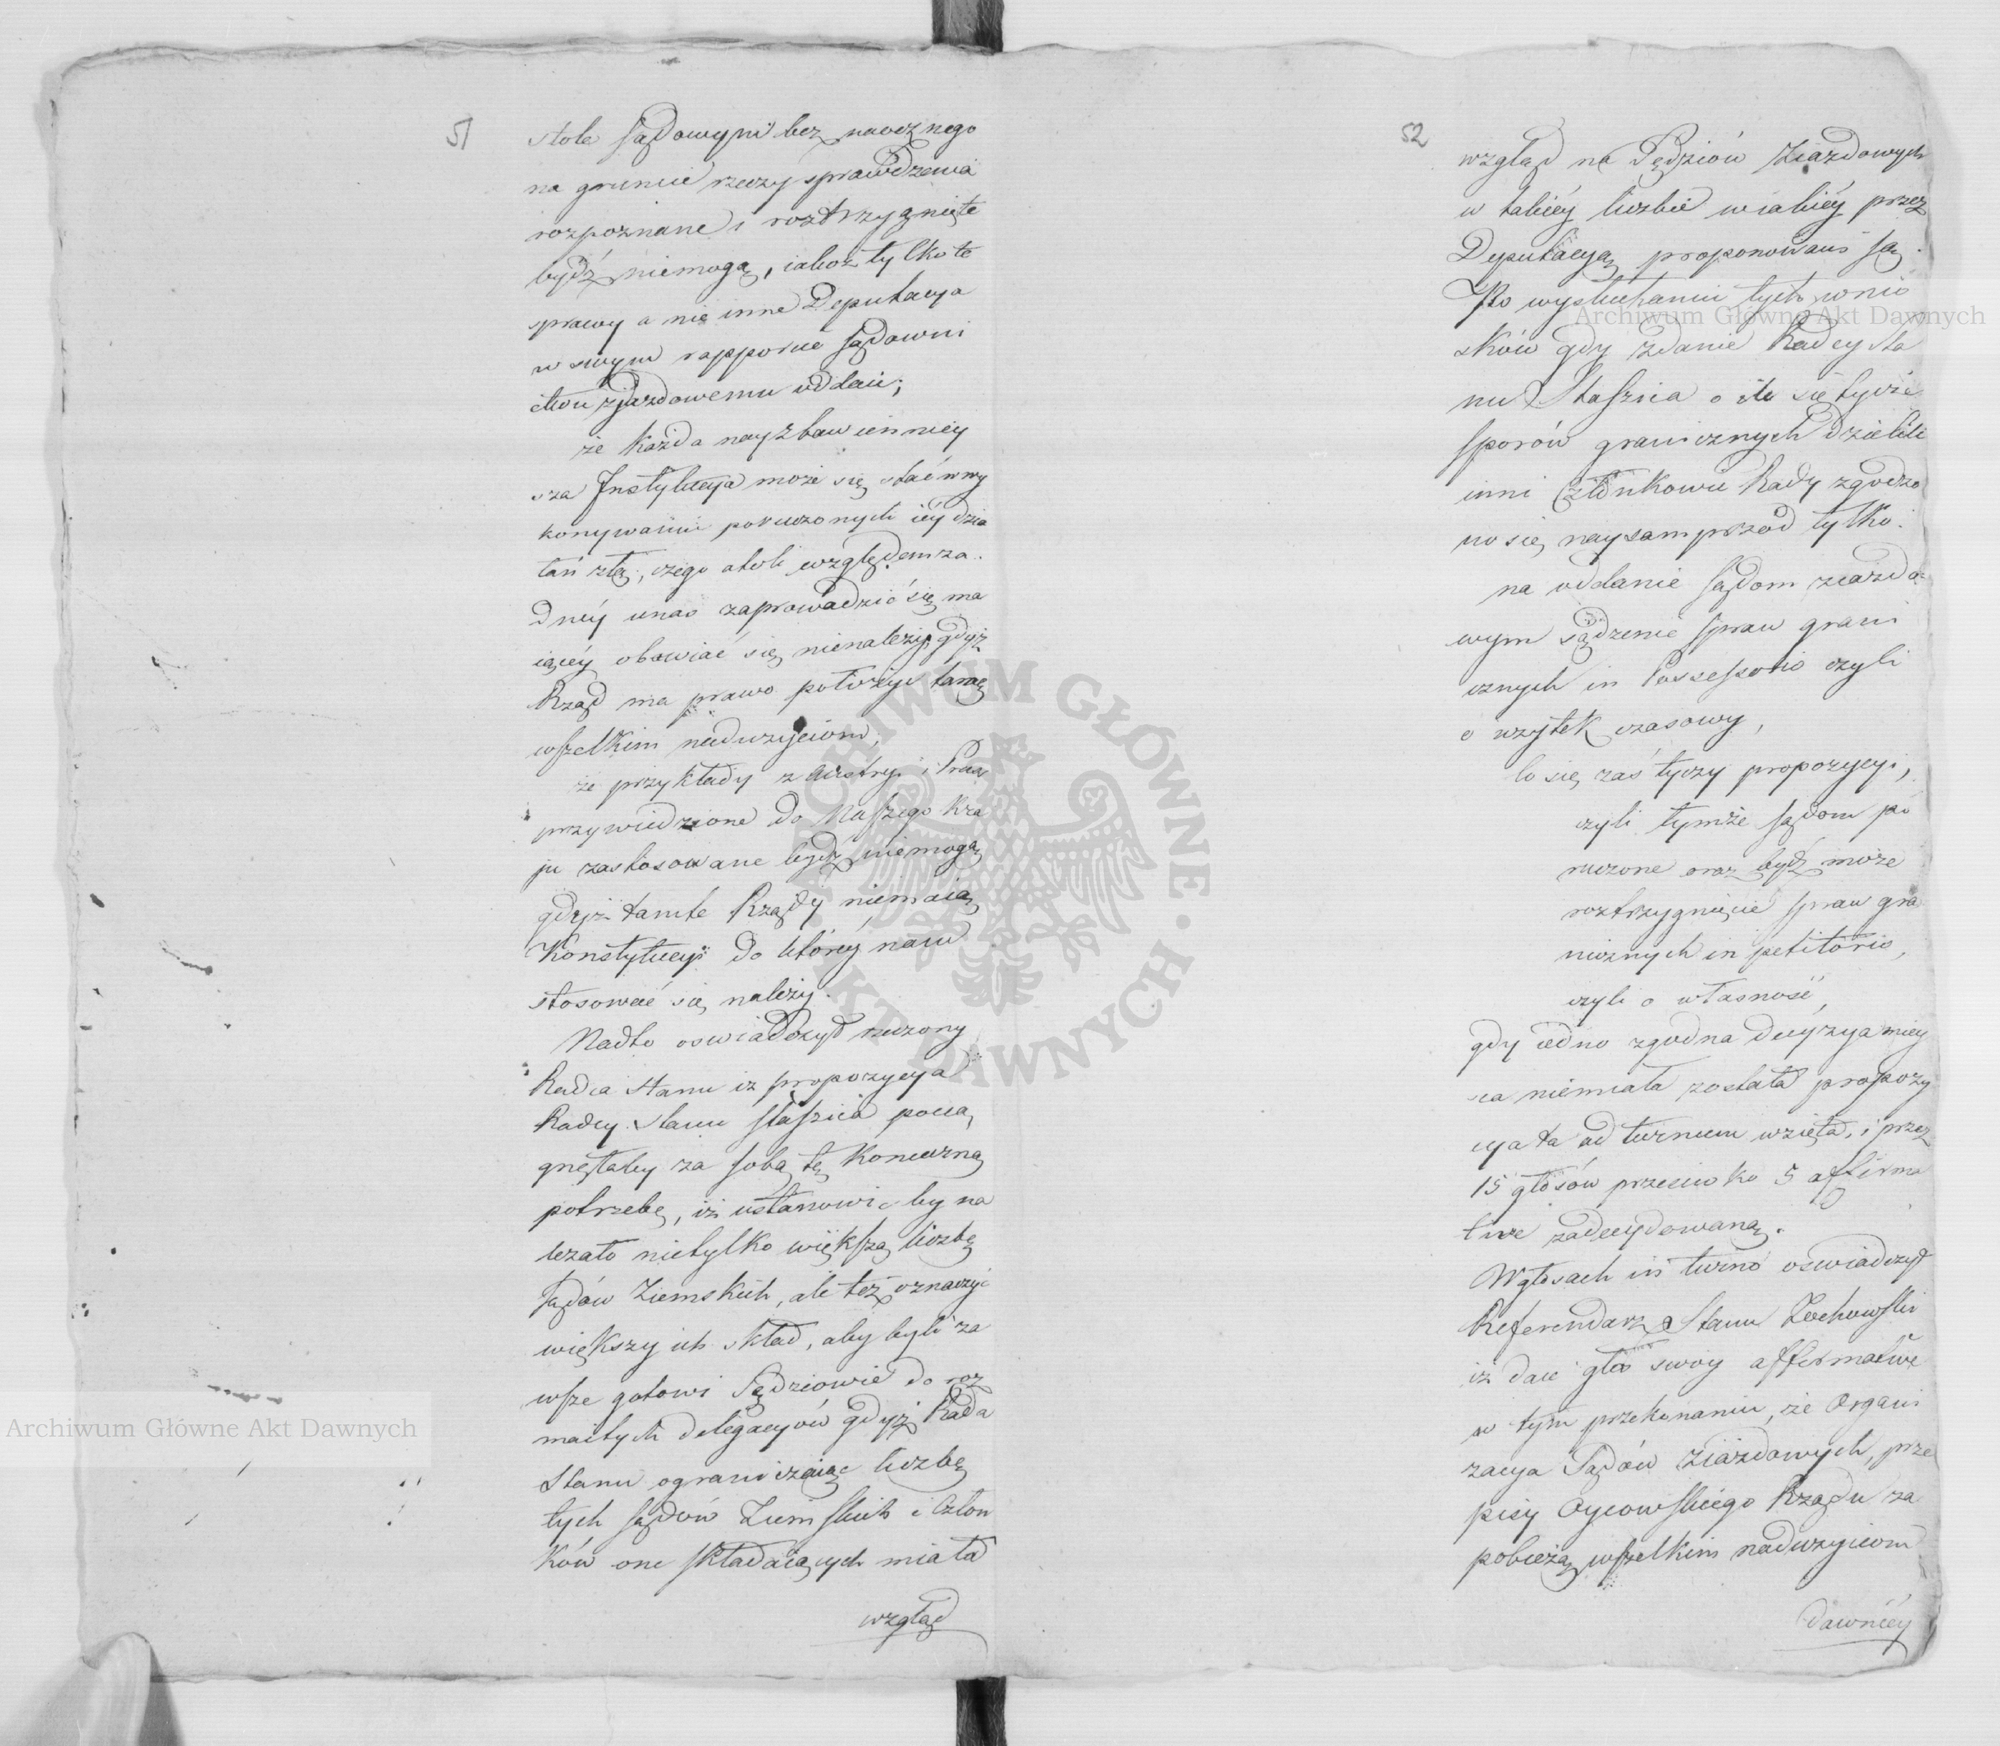 51
stole sądowym bez naocznego
na gruncie rzeczy sprawdzenia
rozpoznane i roztrzygnięte
bydź niemogą, iakoż tylko te
sprawy a nie inne Deputacya
w swym rapporcie sądowni
ctwu zjazdowemu oddaie;
że każda nayzbawienniey
sza Instytucya może się stać w wy
konywaniu poruczonych iey dzia
łań złą, czego atoli względem za
dney u nas zaprowadzić się ma
iącéy obawiać się nienależy, gdyż
Rząd ma prawo położyć tamę
wszelkim nadużyciom;
że przykłady z Austryi i Prus
przywiedzione do Naszego Kra
ju zastosowane bydź niemogą
gdyż tamte Rządy niemaią
Konstytucyi do któréy nam
stosować się należy.
Nadto oswiadczył rzeczony
Radca Stanu iż propozycya
Radcy Stanu Staszica pocią
gnęłaby za sobą tę Konieczną
potrzebę, iż ustanowić by na
leżało nietylko większą liczbę
sądów Ziemskich, ale też oznaczyć
większy ich skład, aby byli za
wsze gotowi Sędziowie do roz
maitych delegacyów gdyż Rada
Stanu ograniczaiąc liczbę
tych sądów Ziemskich i człon
ków one składaiących miała
wzgląd
52
wzgląd na Sędziów Ziazdowych
w takiéy liczbie w iakiéy przez
Deputacyą proponowani są.
Po wysłuchaniu tych wnio
sków gdy zdanie Radcy Sta
nu Staszica o ile się tycze
sporów granicznych dzielili
inni Członkowie Rady zgodzo
no się naysamprzod tylko:
na oddanie sądom ziazdo
wym sądzenie spraw grani
cznych in Possessorio czyli
o użytek czasowy,
Co się zaś tyczy propozycyi,
czyli tymże sądom po
ruczone oraz bydź może
roztrzygnięcie spraw gra
nicznych in petitorio,
czyli o własność,
gdy iedno zgodna decyzya miey
sca niemiała została propozy
cya ta ad turnum wzięta, i przez
15 głosów przeciwko 5 affirma
tive zadecydowaną.
W głosach in turno oswiadczył
Referendarz Stanu Lochowski
iż daie głos swóy affirmative
w tym przekonaniu, że Organi
zacya Sądów Ziazdowych, prze
pisy Oycowskiego Rządu za
pobieżą wszelkim nadużyciom
dawniéy
Archiwum Główne Akt Dawnych
Archiwum Główne Akt Dawnych
ARCHIWUM GŁÓWNE · AKT DAWNYCH ·